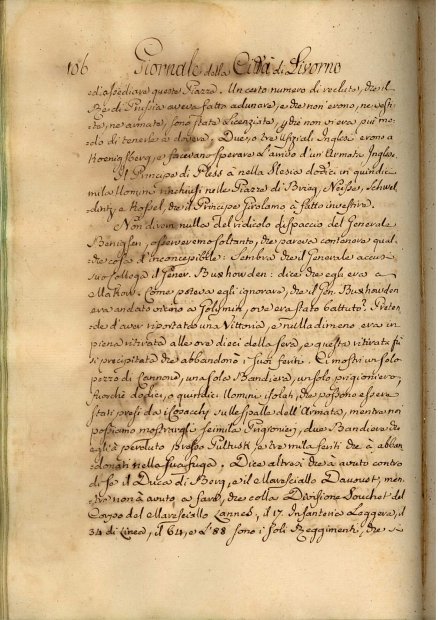 186 Giornale della Città di Livorno
ed assediare queste Piazze. Un certo numero di reclute, che il
Rè di Prussia aveva fatto adunare, e che non erono, ne vesti-
te, ne armate, sono state licenziate, giche non vi era più mo-
do di tenerle à dovere. Due, o tre Ufiziali Inglesi erono a
Koenigsberg, e facevan sperare l'arrivo d'un Armata Inglese.
Il Principe di Pless à nella Slesia dodici in quindici
mila Uomini rinchiusi nelle Piazze di Brieg, Neisse, Schweid-
denitz, e Kossel, che il Principe Girolamo à fatto investire.
Non direm nulla del ridicolo dispaccio del Generale
Benigsen, osserveremo soltanto, che pareva contenere qual-
che cosa d'inconcepibile: Sembra che il Generale accusi
suo Collega il Gener. Buxhowden: dice che egli era a
Makow. Come poteva egli ignorare, che il Gen. Buxhowden
era andato vicino a Golymin, ove era stato battuto? Preten-
de d'aver riportato una Vittoria, e nulladimeno era in
piena ritirata alle ore dieci della sera, e questa ritirata fù
sì precipitata che abbandonò i suoi feriti. Ci mostri un solo
pezzo di Cannone, una sola Bandiera, un solo prigioniero,
fuorchè dodici, o quindici Uomini isolati, che possono essere
stati presi da i Cosacchi sulle spalle dell'Armata, mentre noi
possiamo mostrargli seimila Prigionieri, due Bandiere che
egli à perduto presso Pultusk, e tre mila feriti che à abban-
donati nella sua fuga. Dice altresì che à avuto contro
di se il Duca di Berg, e il Maresciallo Davoust, men-
tre non à avuto, a fare, che colla Divisione Souchet del
Corpo del Maresciallo Lannes, il 17. Infanteria Leggera, il
34 di linea, il 64, e l' 88 sono i soli Reggimenti, che si